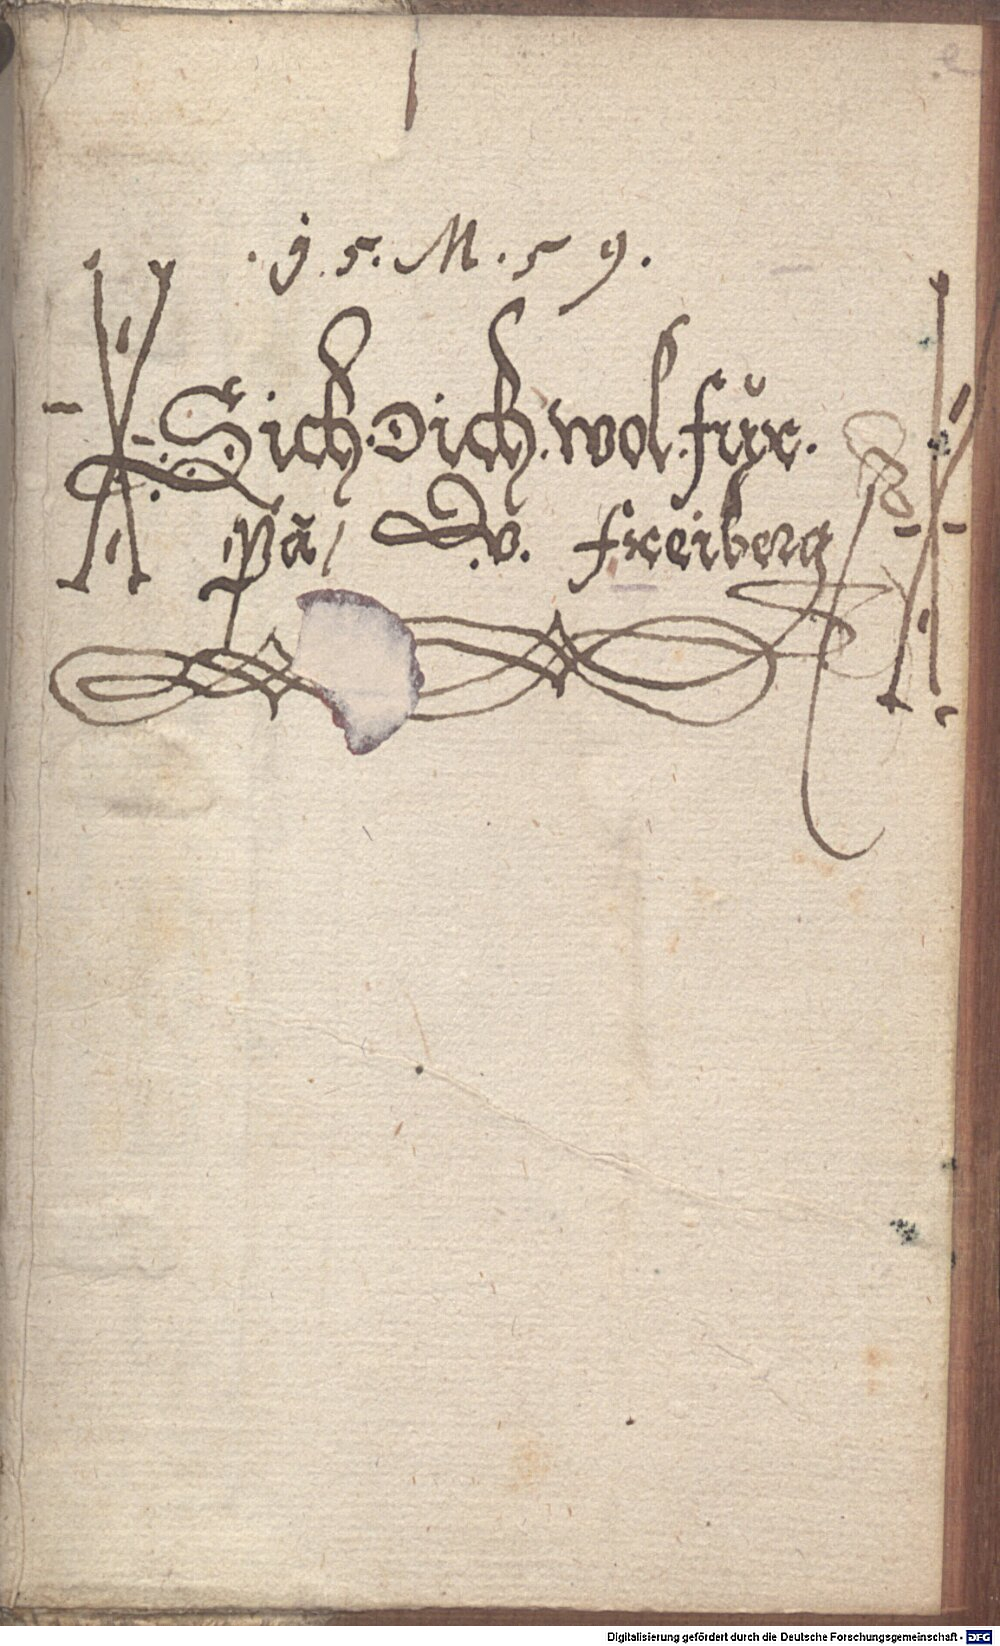 .j5.M.59.
Sich.Dich.wol.für.
Pā/ D.v. Freiberg
Digitalisierung gefördert durch die Deutsche Forschungsgemeinschaft - DFG